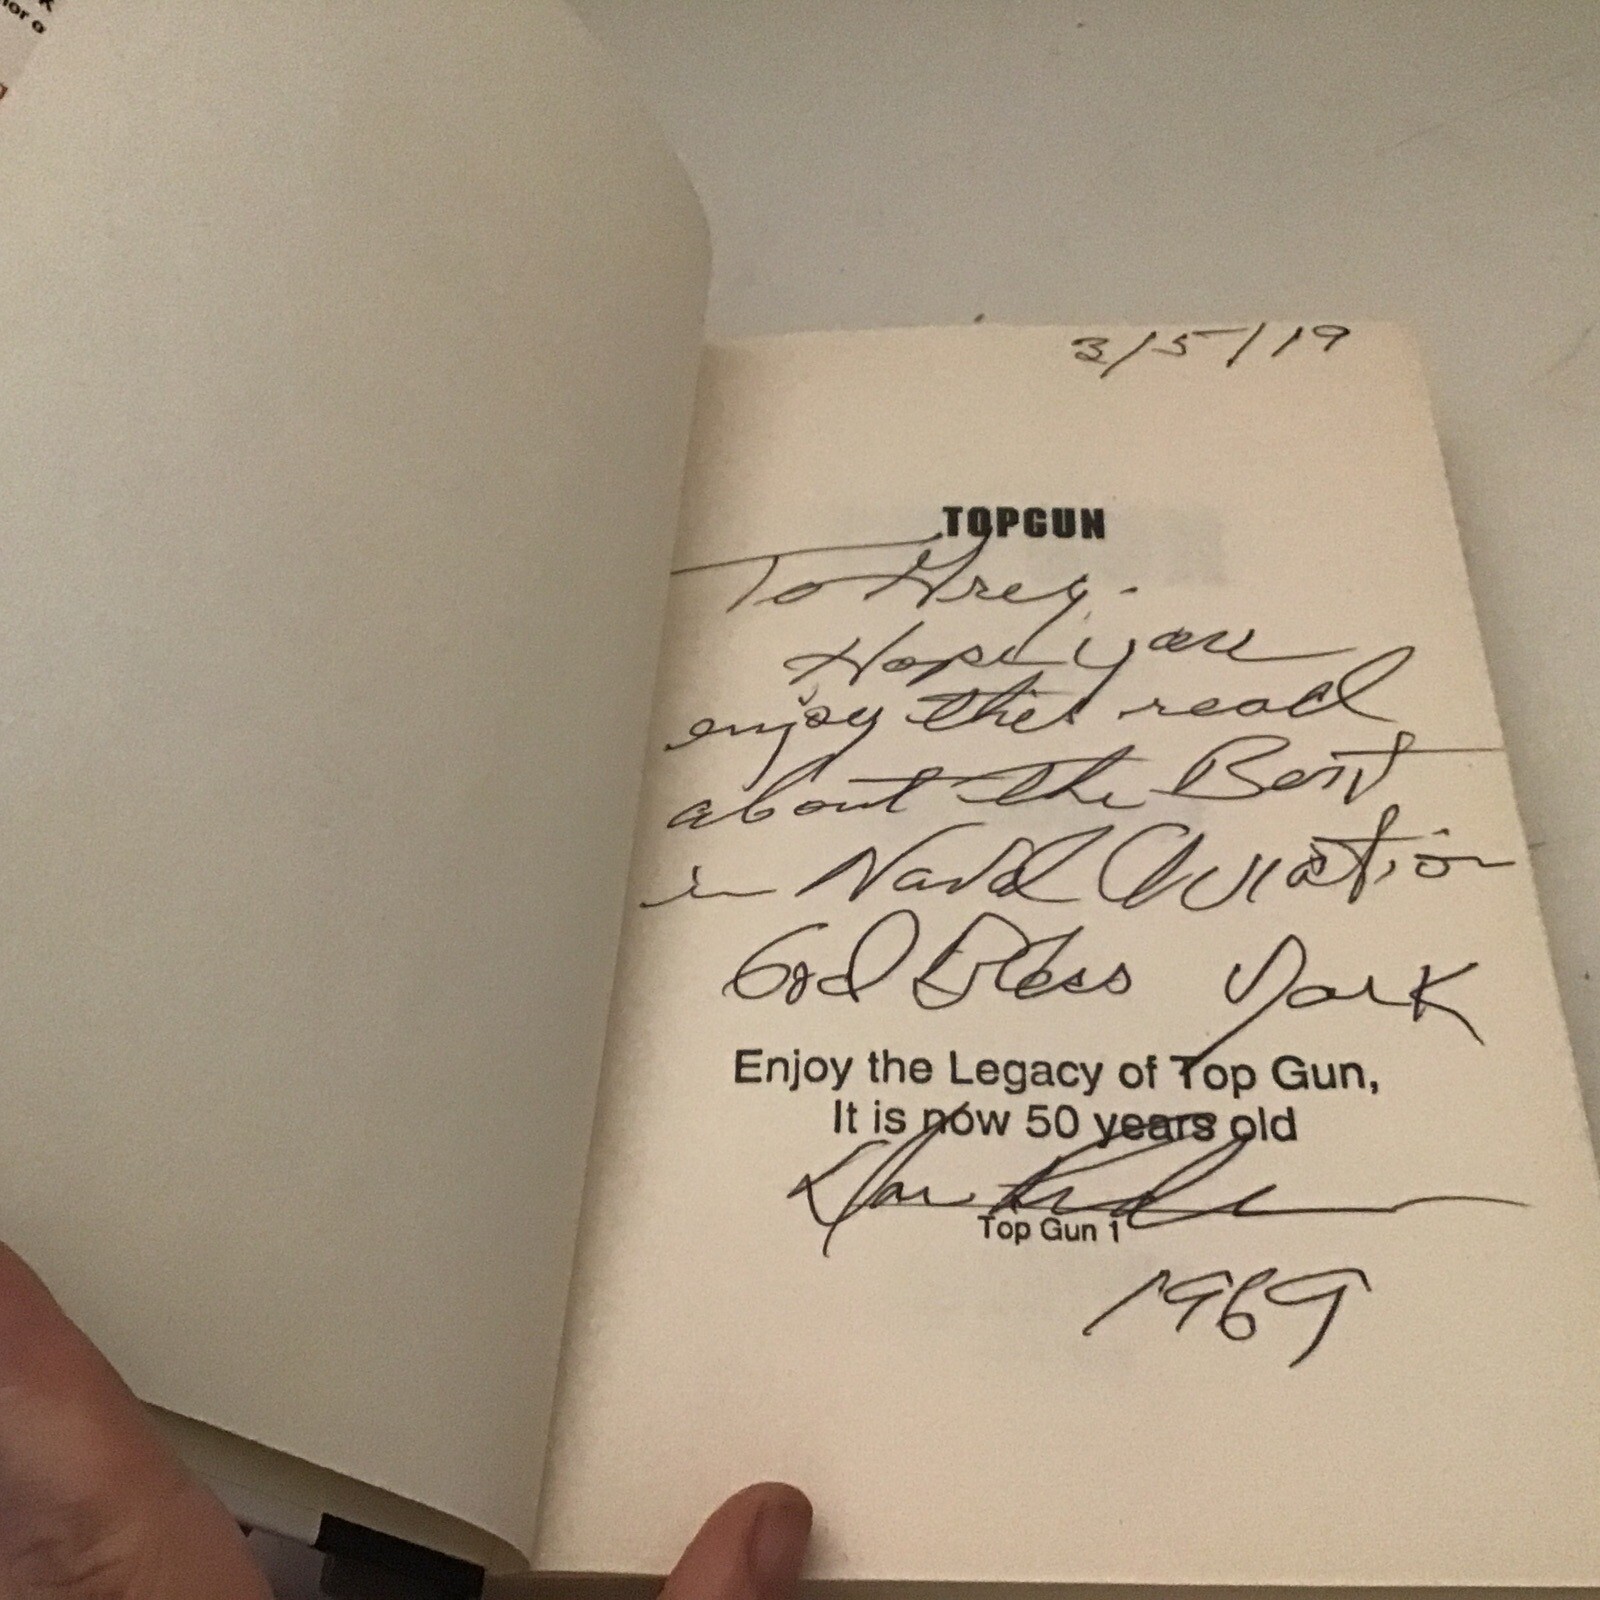 3/5/19
TOPGUN
To Greg.
Hope you
enjoy this read
about the Best
in Naval Aviation
God Bless Yank
Enjoy the Legacy of Top Gun,
It is now 50 years old
Dan
Top Gun 1
1969